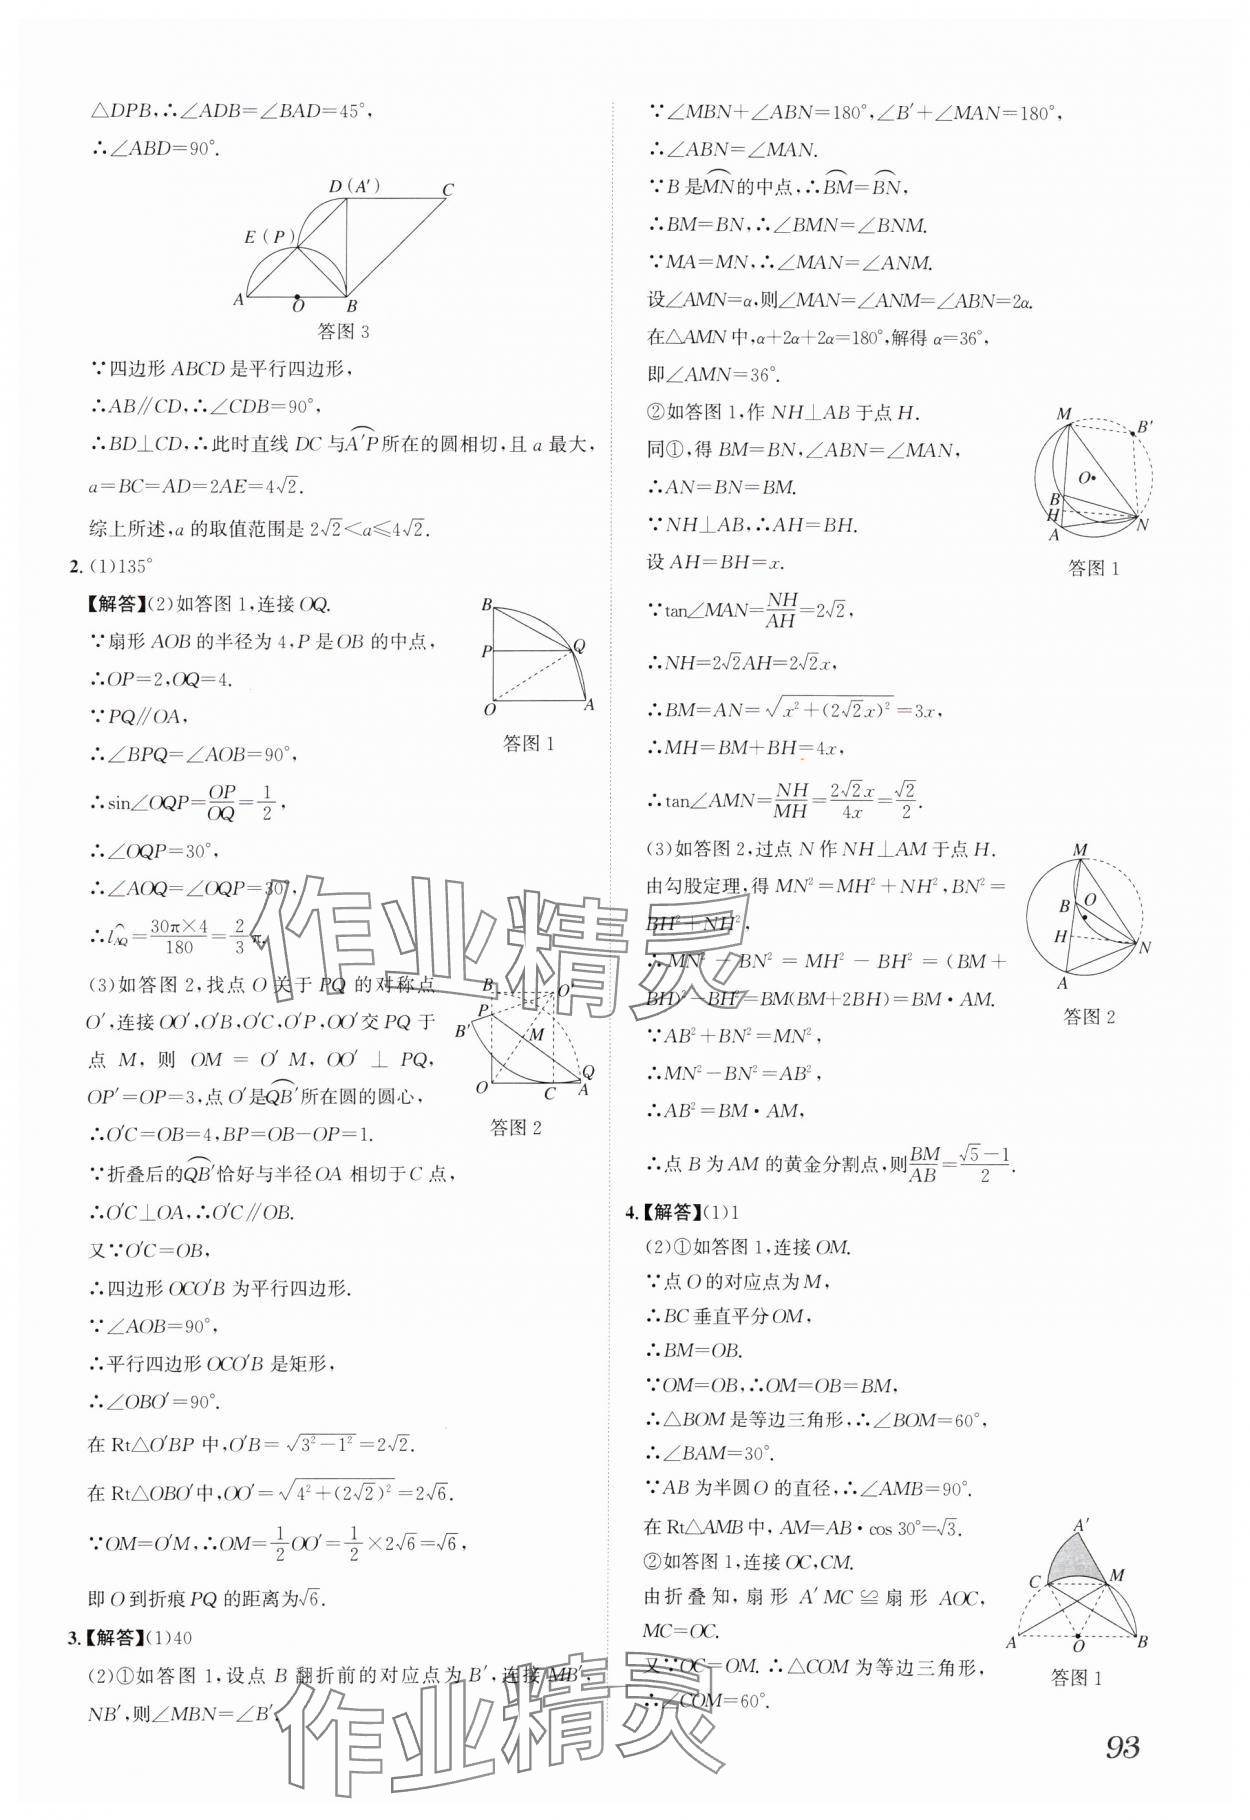 △DPB,∴∠ADB=∠BAD=45°,
∴∠ABD=90°.
D(A′) C
E(P)
A O B
答图 3
∵四边形 ABCD 是平行四边形,
∴AB∥CD,∴∠CDB=90°,
∴BD⊥CD,∴此时直线 DC 与A′P所在的圆相切,且 a 最大,
a=BC=AD=2AE=4√2.
综上所述,a 的取值范围是 2√2<a≤4√2.
2. (1)135°
【解答】(2)如答图 1,连接 OQ.
∵扇形 AOB 的半径为 4,P 是 OB 的中点,
∴OP=2,OQ=4.
∵PQ∥OA,
∴∠BPQ=∠AOB=90°,
∴sin∠OQP=OP/OQ=1/2,
∴∠OQP=30°,
∴∠AOQ=∠OQP=30°,
∴l_AQ=30π×4/180=2/3π.
B
P Q
O A
答图 1
(3)如答图 2,找点 O 关于 PQ 的对称点
O′,连接 OO′,O′B,O′C,O′P,OO′交 PQ 于
点 M, 则 OM = O′M, OO′ ⊥ PQ,
OP′=OP=3,点 O′是QB′所在圆的圆心,
∴O′C=OB=4,BP=OB-OP=1.
B O′
P
B′ M
Q
O C A
答图 2
∵折叠后的QB′恰好与半径 OA 相切于 C 点,
∴O′C⊥OA,∴O′C∥OB.
又∵O′C=OB,
∴四边形 OCO′B 为平行四边形.
∵∠AOB=90°,
∴平行四边形 OCO′B 是矩形,
∴∠OBO′=90°.
在 Rt△O′BP 中,O′B=√(3²-1²)=2√2.
在 Rt△OBO′中,OO′=√(4²+(2√2)²)=2√6.
∵OM=O′M,∴OM=1/2OO′=1/2×2√6=√6,
即 O 到折痕 PQ 的距离为√6.
3.【解答】(1)40
(2)①如答图 1,设点 B 翻折前的对应点为 B′,连接 MB′,
NB′,则∠MBN=∠B′.
∵∠MBN+∠ABN=180°,∠B′+∠MAN=180°,
∴∠ABN=∠MAN.
∵B 是MN的中点,∴BM=BN,
∴BM=BN,∴∠BMN=∠BNM.
∵MA=MN,∴∠MAN=∠ANM.
设∠AMN=α,则∠MAN=∠ANM=∠ABN=2α.
在△AMN 中,α+2α+2α=180°,解得 α=36°,
即∠AMN=36°.
②如答图 1,作 NH⊥AB 于点 H.
同①,得 BM=BN,∠ABN=∠MAN,
∴AN=BN=BM.
∵NH⊥AB,∴AH=BH.
设 AH=BH=x.
M
B′
O
B
H
A
N
答图 1
∵tan∠MAN=NH/AH=2√2,
∴NH=2√2AH=2√2x,
∴BM=AN=√(x²+(2√2x)²)=3x,
∴MH=BM+BH=4x,
∴tan∠AMN=NH/MH=2√2x/4x=√2/2.
(3)如答图 2,过点 N 作 NH⊥AM 于点 H.
由勾股定理,得 MN²=MH²+NH²,BN²=
BH²+NH²,
∴MN² - BN² = MH² - BH² = (BM+
BH)²-BH²=BM(BM+2BH)=BM·AM.
∵AB²+BN²=MN²,
∴MN²-BN²=AB²,
∴AB²=BM·AM,
M
B O
H N
A
答图 2
∴点 B 为 AM 的黄金分割点,则BM/AB=(√5-1)/2.
4.【解答】(1)1
(2)①如答图 1,连接 OM.
∵点 O 的对应点为 M,
∴BC 垂直平分 OM,
∴BM=OB.
∵OM=OB,∴OM=OB=BM,
∴△BOM 是等边三角形,∴∠BOM=60°,
∴∠BAM=30°.
∵AB 为半圆 O 的直径,∴∠AMB=90°.
在 Rt△AMB 中,AM=AB·cos 30°=√3.
②如答图 1,连接 OC,CM.
由折叠知,扇形 A′MC≌扇形 AOC,
MC=OC.
又∵OC=OM.∴△COM 为等边三角形,
∴∠COM=60°.
A′
C M
A O B
答图 1
作业精灵
作业精灵
93